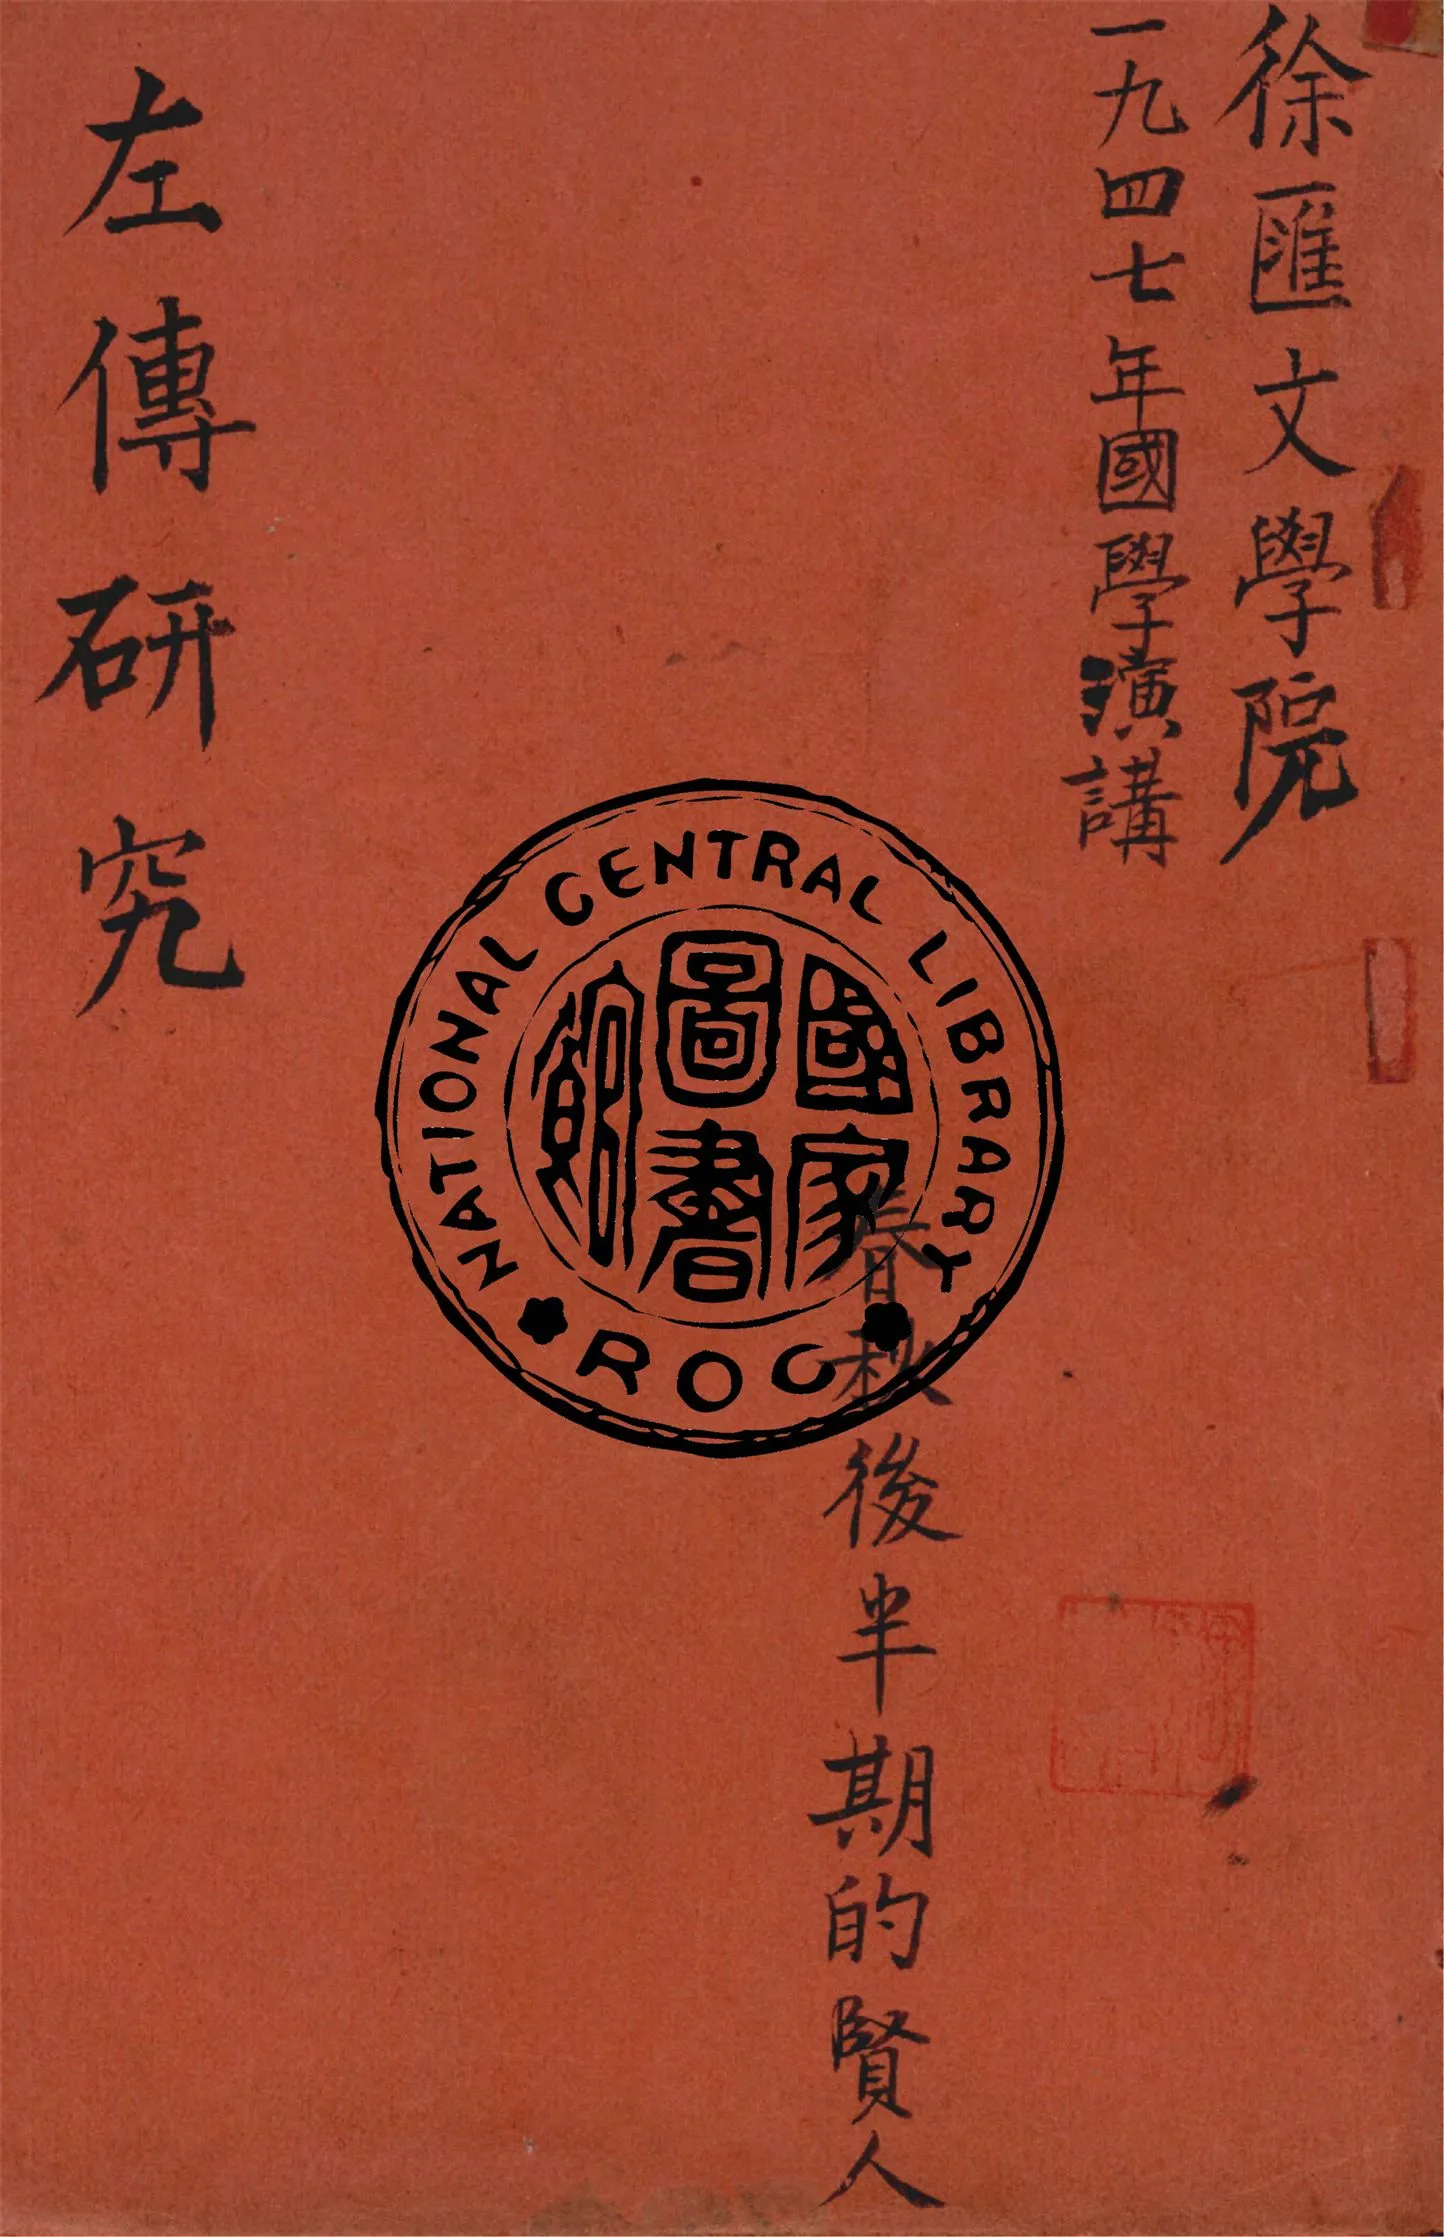 徐匯文學院
一九四七年國學演講
春秋後半期的賢人
左傳研究
NATIONAL CENTRAL LIBRARY
國家
圖書
館
ROC